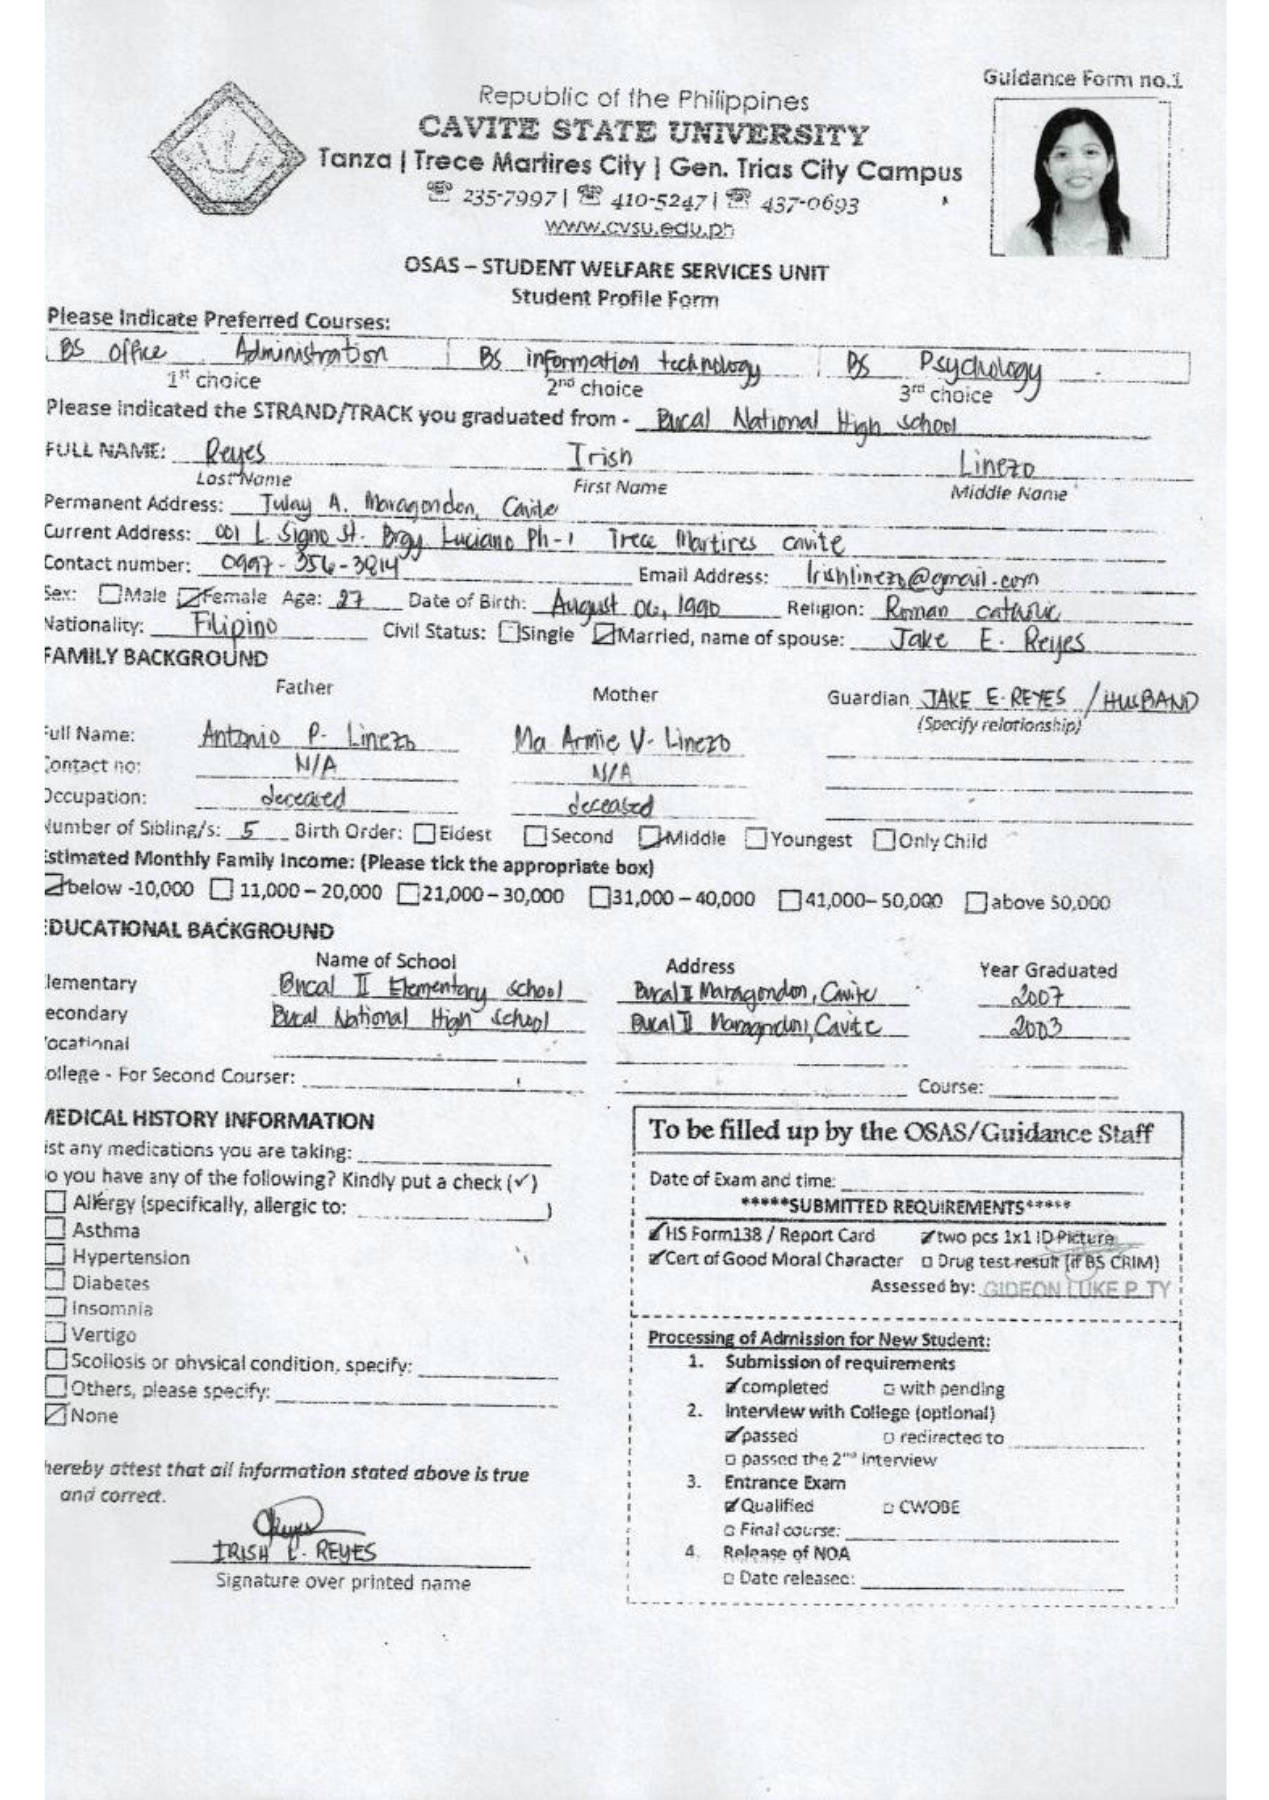 Guidance Form no.1
Republic of the Philippines
CAVITE STATE UNIVERSITY
Tanza | Trece Martires City | Gen. Trias City Campus
☏ 235-7997 | ☏ 410-5247 | ☏ 437-0693
www.cvsu.edu.ph
OSAS – STUDENT WELFARE SERVICES UNIT
Student Profile Form
Please Indicate Preferred Courses:
BS Office Administration | BS information technology | BS Psychology
1st choice 2nd choice 3rd choice
Please indicated the STRAND/TRACK you graduated from - Bucal National High school
FULL NAME: Reyes Irish Linezo
Last Name First Name Middle Name
Permanent Address: Tulay A. Maragondon, Cavite
Current Address: 001 L. Signo St. Brgy Luciano Ph-1 Trece Martires cavite
Contact number: 0997-356-3814 Email Address: Irishlinezo@gmail.com
Sex: ☐ Male ☑ Female Age: 27 Date of Birth: August 06, 1990 Religion: Roman catholic
Nationality: Filipino Civil Status: ☐ Single ☑ Married, name of spouse: Jake E. Reyes
FAMILY BACKGROUND
Father Mother Guardian JAKE E. REYES / HUSBAND
(Specify relationship)
Full Name: Antonio P. Linezo Ma Armie V. Linezo
Contact no: N/A N/A
Occupation: deceased deceased
Number of Sibling/s: 5 Birth Order: ☐ Eldest ☐ Second ☑ Middle ☐ Youngest ☐ Only Child
Estimated Monthly Family Income: (Please tick the appropriate box)
☑ below -10,000 ☐ 11,000 – 20,000 ☐ 21,000 – 30,000 ☐ 31,000 – 40,000 ☐ 41,000– 50,000 ☐ above 50,000
EDUCATIONAL BACKGROUND
Name of School Address Year Graduated
lementary Bucal II Elementary school Bucal II Maragondon, Cavite 2007
econdary Bucal National High school Bucal II Maragondon, Cavite 2003
ocational
ollege - For Second Courser: Course:
MEDICAL HISTORY INFORMATION
ist any medications you are taking:
o you have any of the following? Kindly put a check (✓)
☐ Allergy (specifically, allergic to: )
☐ Asthma
☐ Hypertension
☐ Diabetes
☐ Insomnia
☐ Vertigo
☐ Scoliosis or physical condition, specify:
☐ Others, please specify:
☑ None
hereby attest that all information stated above is true
and correct.
IRISH L. REYES
Signature over printed name
To be filled up by the OSAS/Guidance Staff
Date of Exam and time:
*****SUBMITTED REQUIREMENTS*****
☑ HS Form138 / Report Card ☑ two pcs 1x1 ID Picture
☑ Cert of Good Moral Character ☐ Drug test result (if BS CRIM)
Assessed by: GIDEON LUKE P. TY
Processing of Admission for New Student:
1. Submission of requirements
☑ completed ☐ with pending
2. Interview with College (optional)
☑ passed ☐ redirected to
☐ passed the 2nd interview
3. Entrance Exam
☑ Qualified ☐ CWOBE
☐ Final course:
4. Release of NOA
☐ Date released: